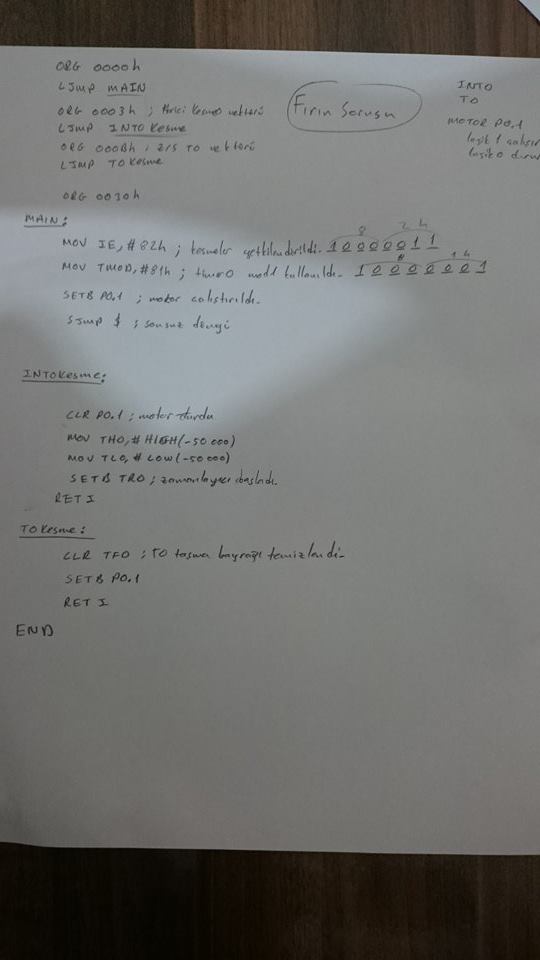 ORG 0000h
LJMP MAIN
ORG 0003h ; Harici kesme vektörü
LJMP INT0 Kesme
ORG 000Bh ; T0 vektörü
LJMP T0 Kesme
Fırın Sorusu
INT0
T0
MOTOR P0.1
lojik 1 çalışır
lojik 0 durur
ORG 0030h
MAIN:
MOV IE, #82h ; kesmeler yetkilendirildi. 10000011
8 2h
MOV TMOD, #81h ; timer0 mod1 kullanıldı. 10000001
8 1h
SETB P0.1 ; motor çalıştırıldı.
SJMP $ ; sonsuz döngü
INT0Kesme:
CLR P0.1 ; motor durdu
MOV TH0, # HIGH(-50 000)
MOV TL0, # LOW(-50 000)
SETB TR0 ; zamanlayıcı başladı.
RETI
T0 Kesme:
CLR TF0 ; T0 taşma bayrağı temizlendi-
SETB P0.1
RETI
END